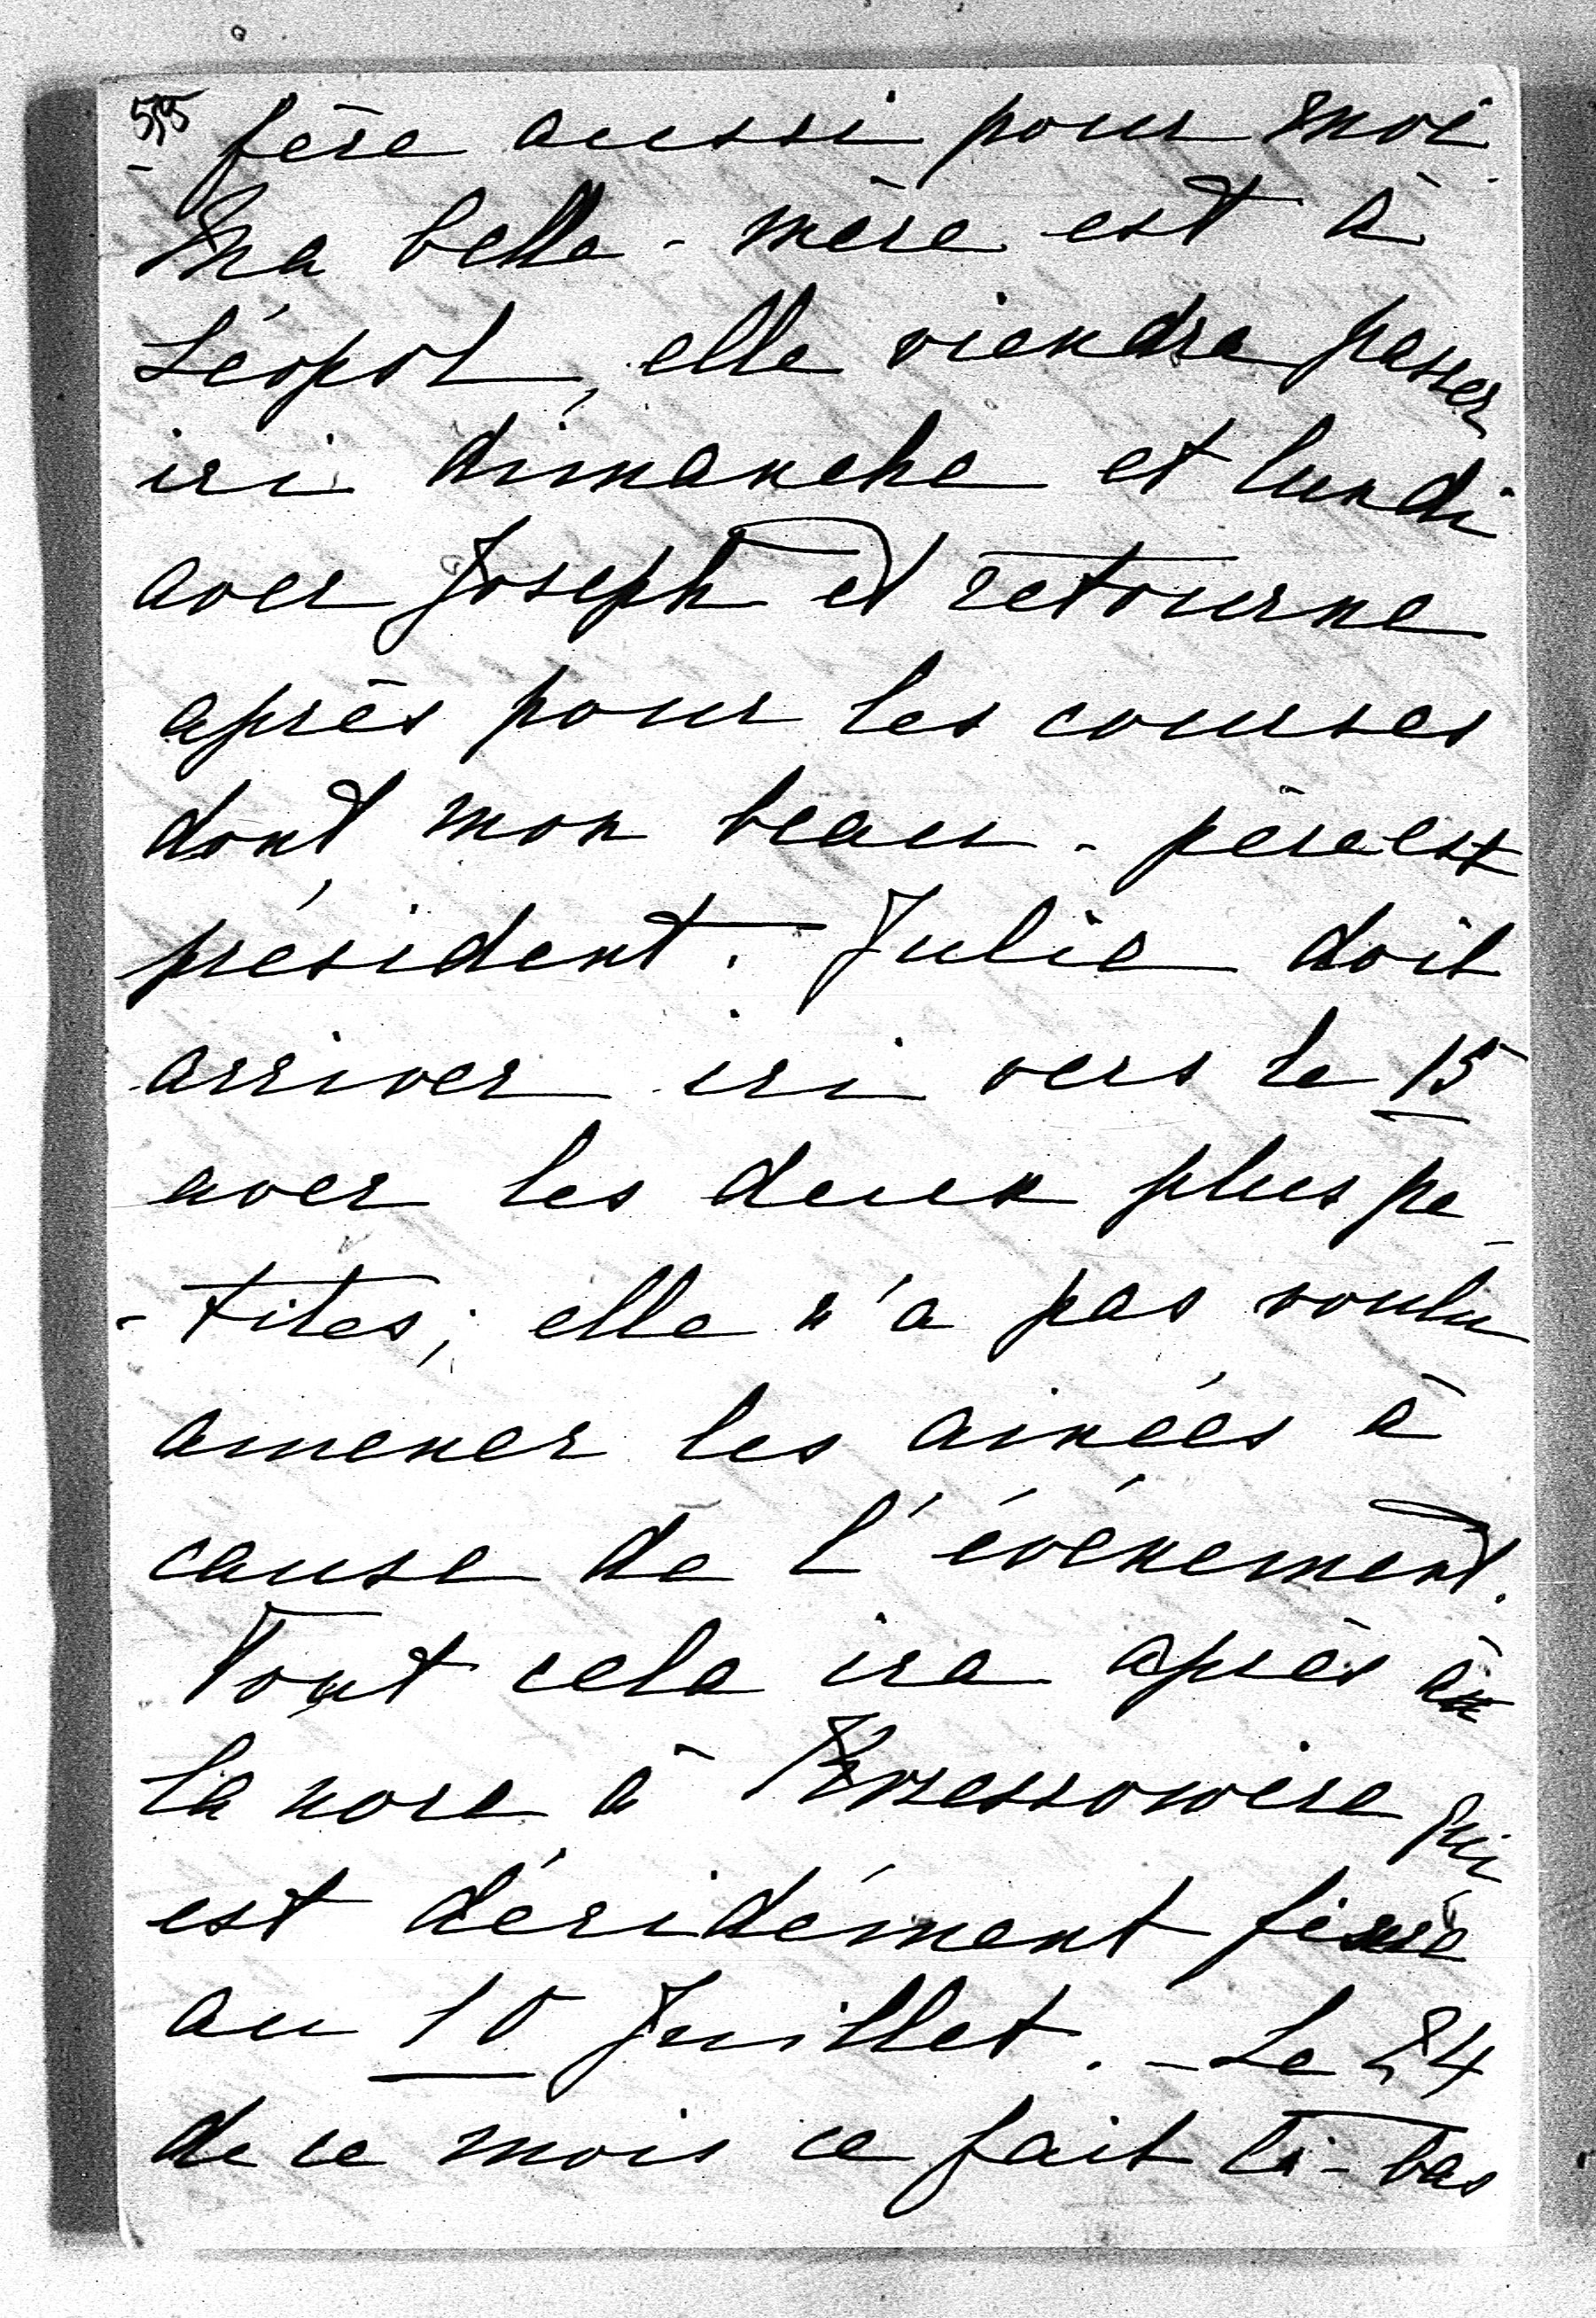 55 fère aussi pour moi.
Ma belle-mère est à
Léopol, elle viendra passer
ici dimanche et lundi
avec Joseph et retourne
après pour les courses
dont mon beau-père est
président. Julie doit
arriver ici vers le 15
avec les deux plus pe-
-tites; elle n'a pas voulu
amener les ainées à
cause de l'événement.
Tout cela ira après à
la noce à Krzessowice qui
est décidément fixée
au 10 Juillet. - Le 24
de ce mois ce fait là-bas